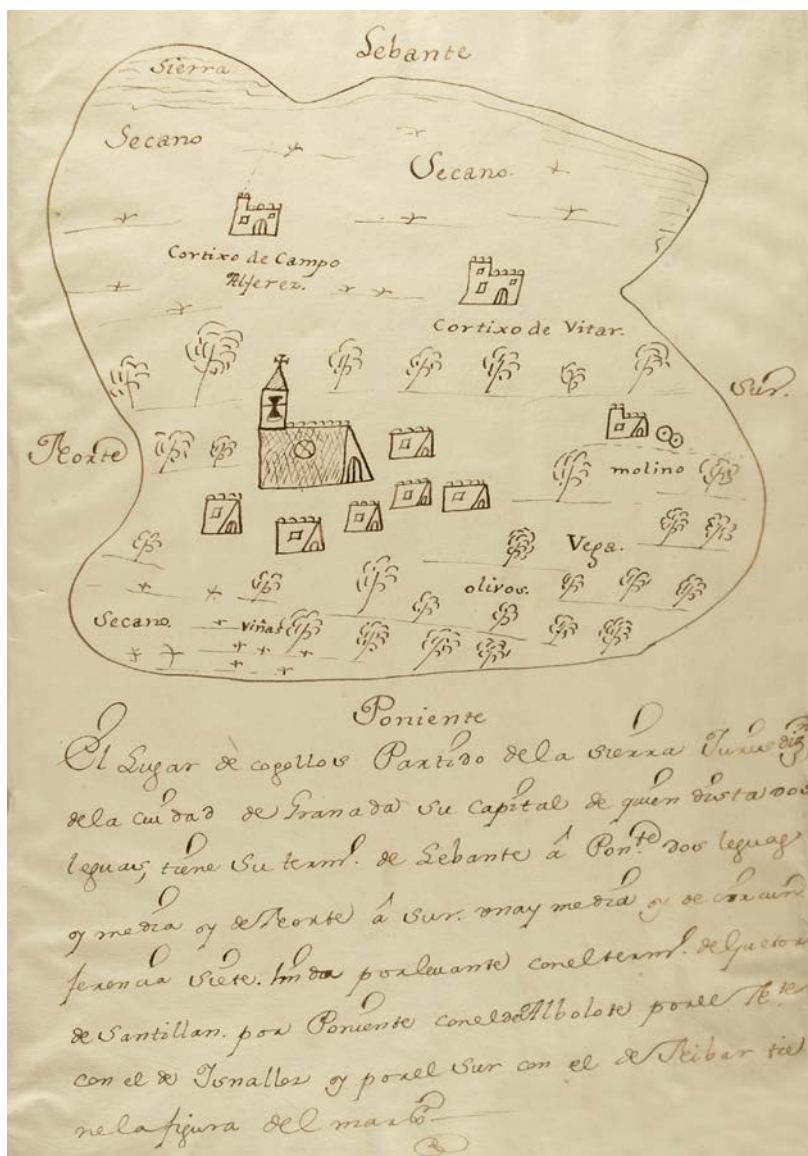 Lebante
Sierra
Secano
Secano.
Cortixo de Campo
Alferez.
Cortixo de Vitar.
Sur.
Norte
molino
Vega.
olivos.
Secano.
viñas
Poniente
El Lugar de cogollos Partido de la sierra Jurisdizn
de la ciudad de Granada su capital de quien dista dos
leguas, tiene su termo. de Lebante â Ponte. dos leguas
y media y de Norte â Sur. una y media y de circun
ferencia siete. linda por levante con el termo. de Guetor
de Santillan. por Poniente con el de Albolote por el Nte.
con el de Isnalloz y por el Sur con el de Nibar tie
ne la figura del margn